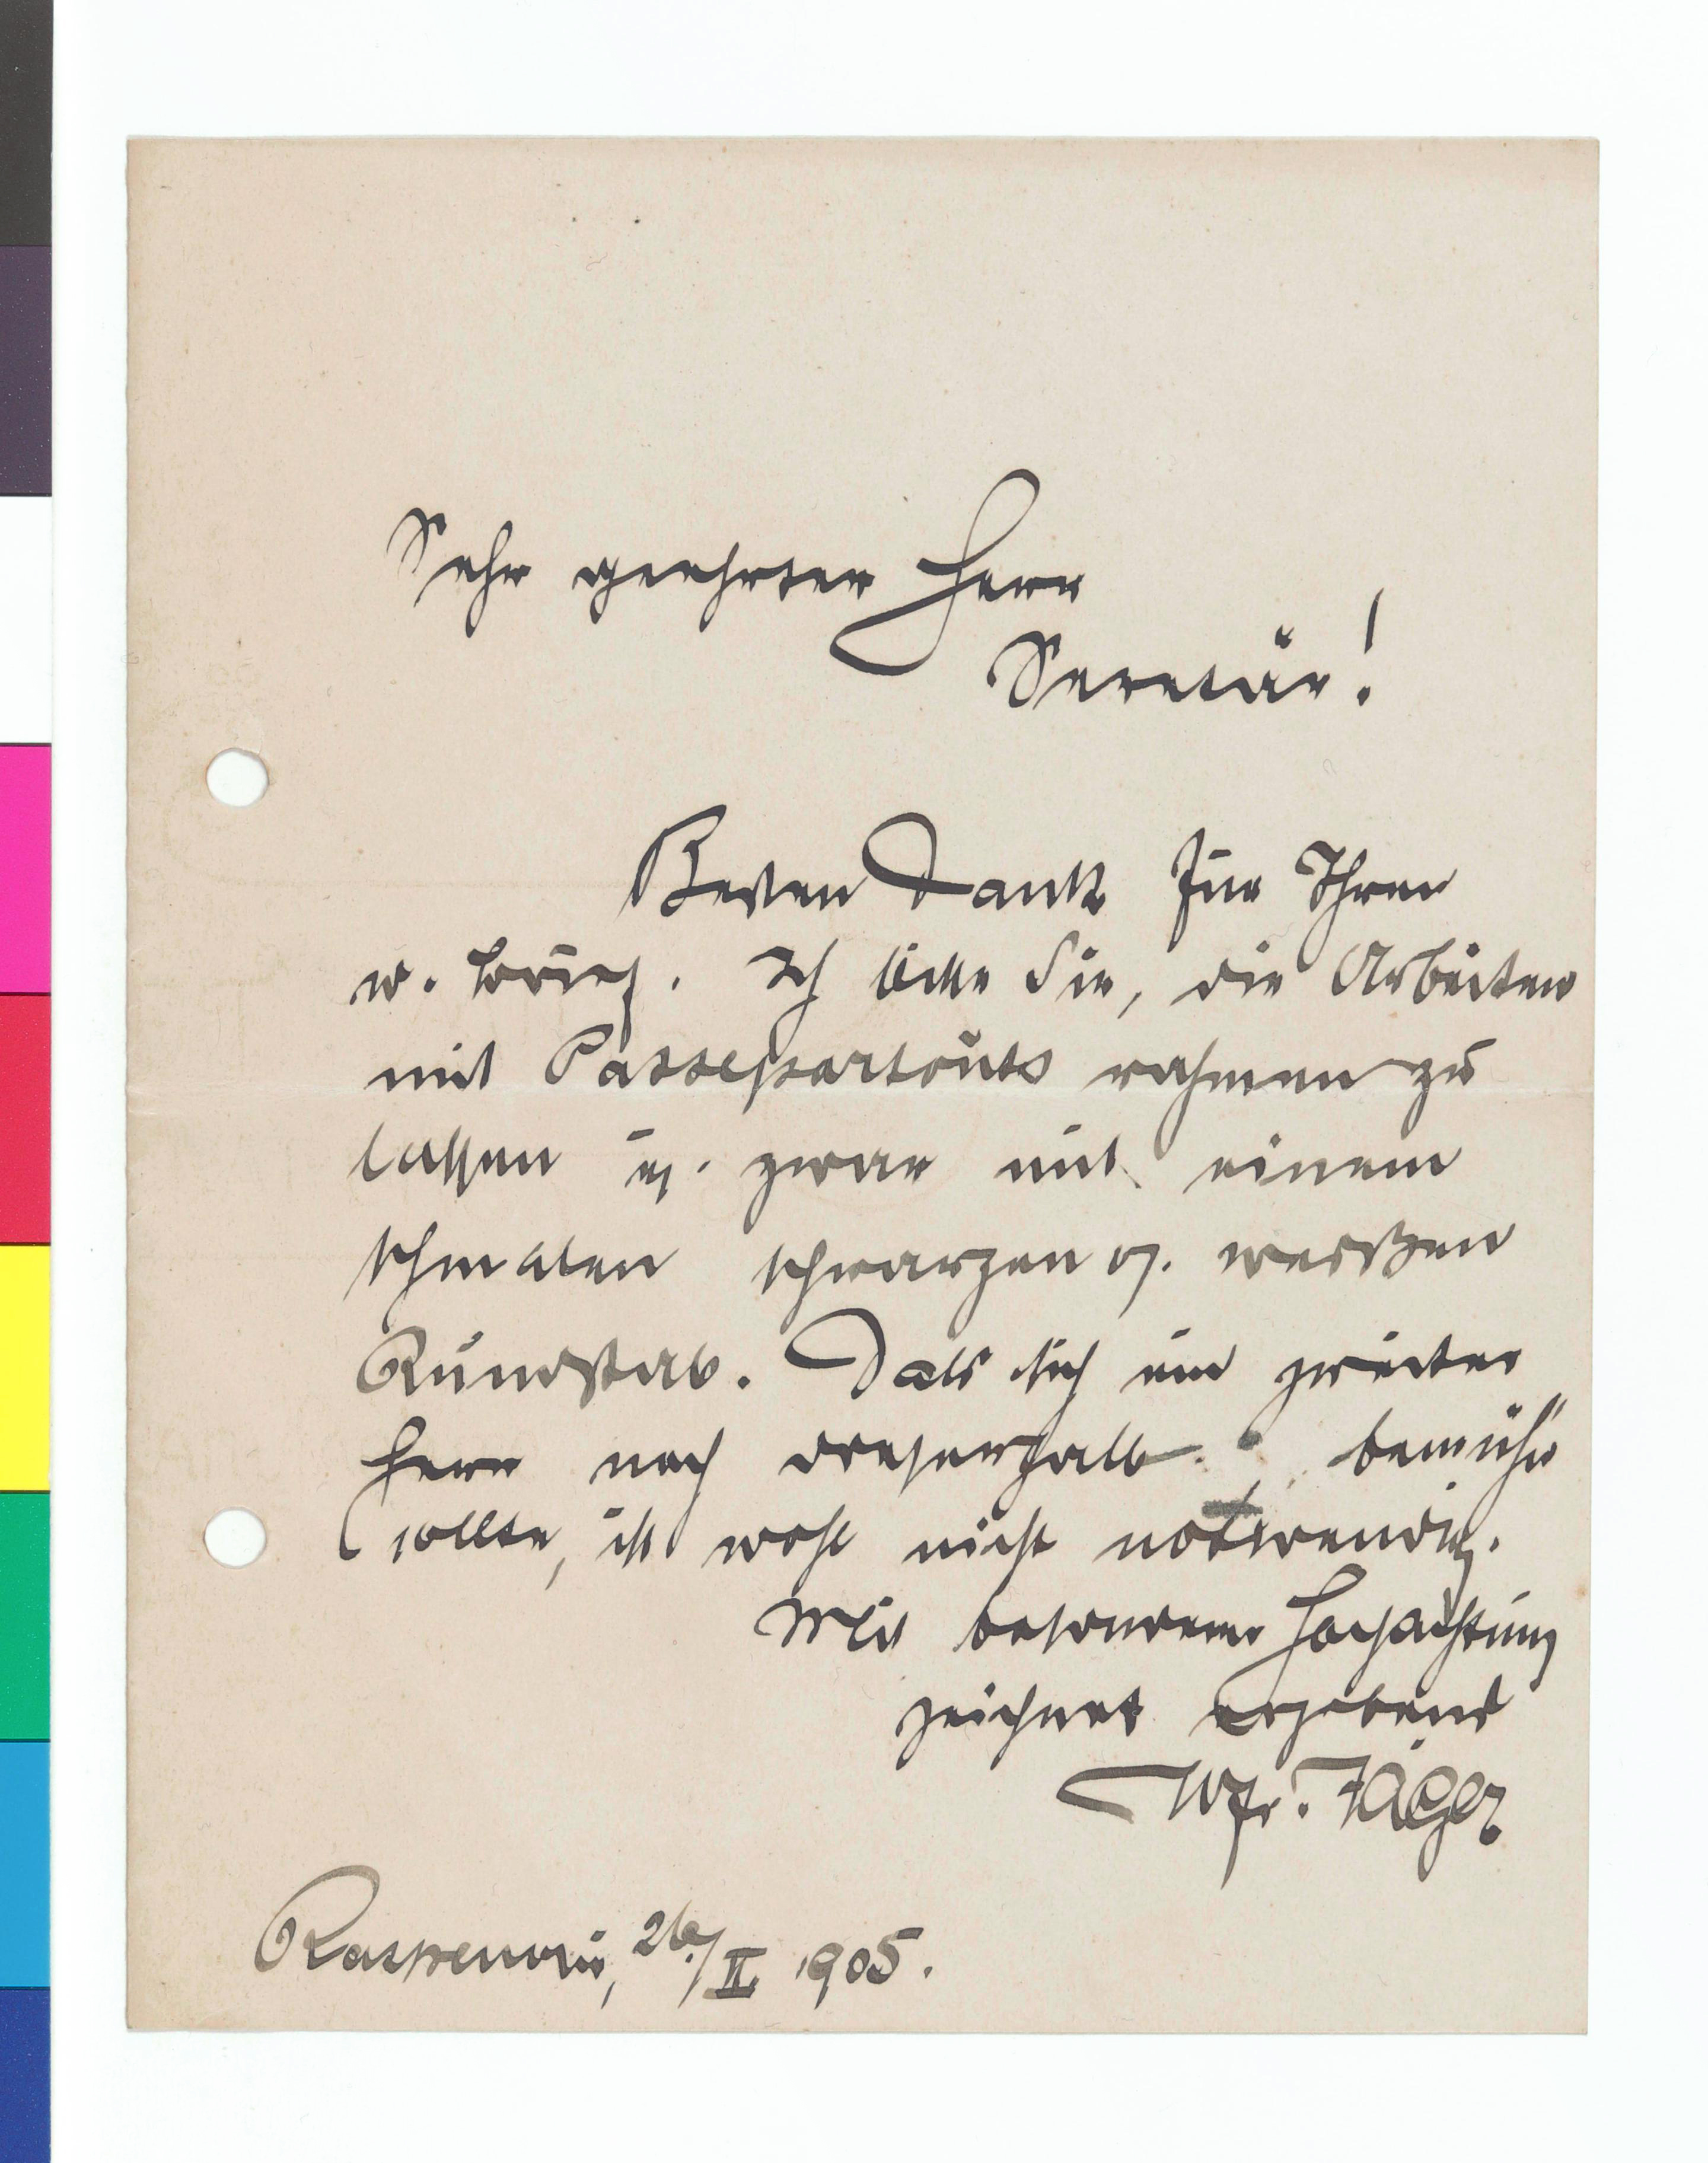 Sehr geehrter Herr
Seretär!
Besten Dank für Ihren
w. Brief. Ich bitte Sie, die Arbeiten
mit Passepartouts rahmen zu
lassen u. zwar mit einem
schmalen schwarzen od. weißen
Rundstab. Dass sich ein zweiter
Herr noch dieserhalb bemühe
sollte, ist wohl nicht notwendig.
Mit besonderer Hochachtung
zeichnet ergebenst
Wfr. Jäger
Raspenau, 26./II. 1905.